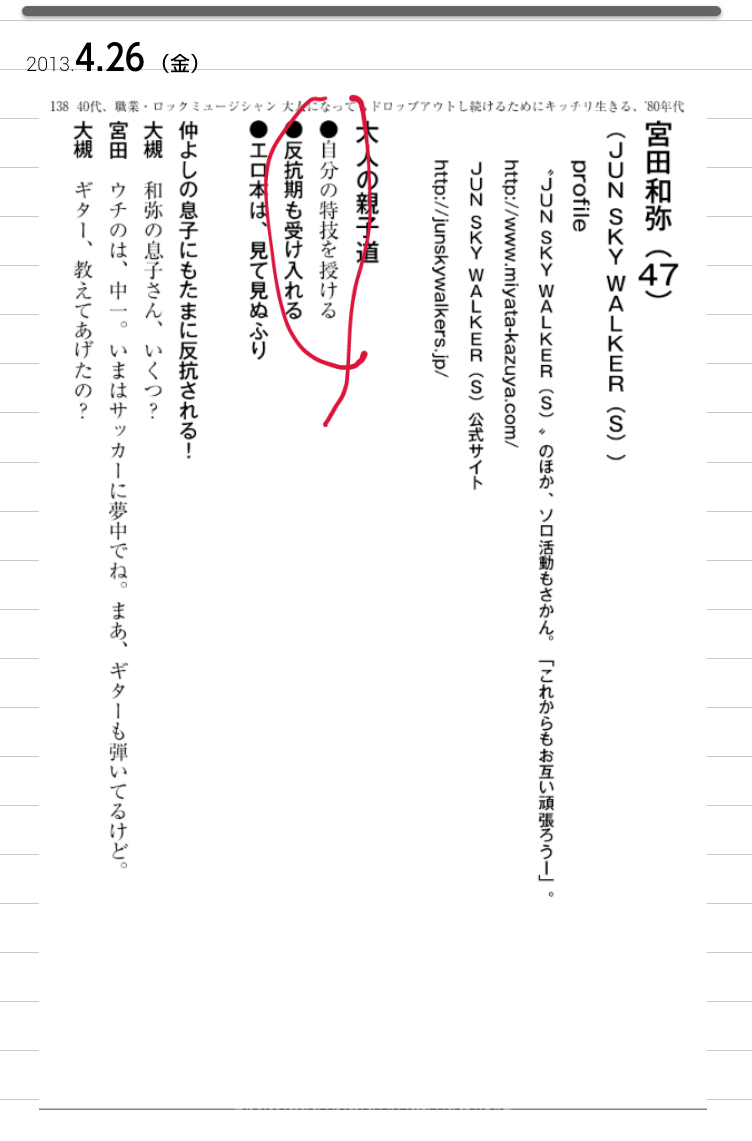 2013.4.26（金）
138 40代、職業・ロックミュージシャン 大人になってもドロップアウトし続けるためにキッチリ生きる、'80年代
宮田和弥（47）
（JUN SKY WALKER（S））
profile
〝JUN SKY WALKER（S）〟のほか、ソロ活動もさかん。「これからもお互い頑張ろうー」。
http://www.miyata-kazuya.com/
JUN SKY WALKER（S）公式サイト
http://junskywalkers.jp/
大人の親子道
●自分の特技を授ける
●反抗期も受け入れる
●エロ本は、見て見ぬふり
仲よしの息子にもたまに反抗される！
大槻　和弥の息子さん、いくつ？
宮田　ウチのは、中一。いまはサッカーに夢中でね。まあ、ギターも弾いてるけど。
大槻　ギター、教えてあげたの？